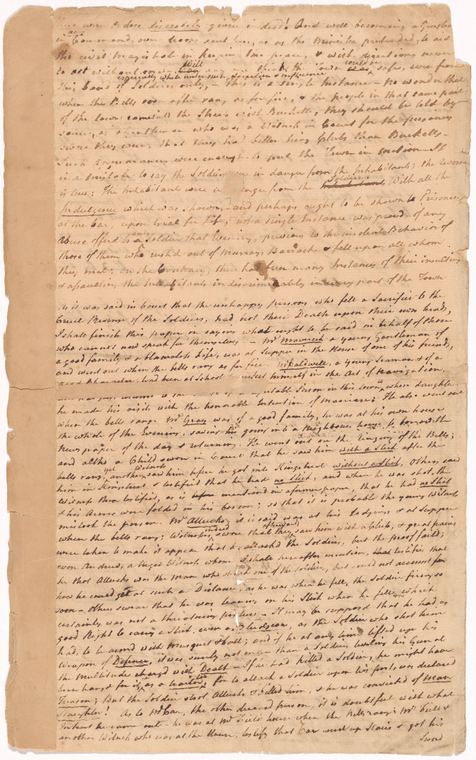 the civil magistrate in keeping the peace, & with directions never
to act without
this band of Soldiers only, this is a single Instance. No wonder that
when the Bells rung as for fire, & the people in that same part
of the town came into the Street with Bucketts, they should be told by
some, as another who was a Witness in Court for the prisoners
swore they were, that they had better bring Clubs than Bucketts
Such Appearances were enough to put the Town in motion. It
is a mistake to say the Soldiers were in danger from the Inhabitants; the reverse
is true: The Inhabitants were in danger from the With all the
Indulgence which was shown, and perhaps ought to be shown to Prisoners
at the bar, upon trial for life, not a single Instance was proved of any
Abuse offerd to a Soldier that Evening, previous to the insolent Behavior of
those of them who rushd out of Murrays Barracks, & fell upon all whom
they met: On the Contrary, there had been many Instances of their insulting
& assaulting the Inhabitants indiscriminately in every part of the Town
As it was said in Court that the unhappy persons who fell a Sacrifice to the
Cruel Revenge of the Soldiers, had brot their Death upon their own head,
I shall finish this paper in saying what ought to be said in behalf of those
who cannot now speak for themselves. Mr Maverick a young Gentleman of
a good family & a blameless Life, was at Supper in the House of one of his friends,
and went out when the bells rang as for fire. Caldwell, a young Seaman & of a
good Character, had been at School to perfect himself in the Art of Navigation,
he made his visit with the honorable Intention of Marriage; He also went out
when the bells rang. Mr Gray was of a good family; he was at his own house
the whole of the Evening, saving his going into a Neighbours house to borrow the
News paper of the day & returning. He went out on the Ringing of the Bells;
and altho a Child swore in Court that he saw him with a stick after the
bells rang, yet another Witness saw him before he got into Kingstreet without a stick. Others saw
him in Kingstreet & testified that he had no stick, and when he was shot, the
Witness then testified, as is mentiond in a former paper, that he had no stick
& his Arms were folded in his bosom: so that it is probable the young Witness
mistook the person. Mr Attucks, it is said was at his Lodging & at supper
when the bells rang: Witnesses indeed swore that they saw him with a Club, & great pains
were taken to make it appear that he attackd the Soldiers, but the proof faild;
even Andrew, a Negro Witness whom I shall hereafter mention, testified that
he thot Attucks was the Man who struck one of the Soldiers, but could not account for
how he could get at such a Distance, as he was when he fell, the Soldier firing so
soon. Others swear that he was leaning on his Stick when he fell, which
certainly was not a threatning posture: It may be supposed that he had as
good Right to carry a Stick, even a Bludgeon, as the Soldier who shot him
had, to be armd with Musquet & ball; and if he at any time lifted up his
Weapon of Defence, it was surely not more than a Soldiers levelling his Gun at
the Multitude chargd with Death. If he had killed a Soldier, he might have
been hangd for it, & as a traitor too for to attack a Soldier upon his post, was declared
Treason; But the Soldier shot Attucks & killd him, & he was convicted of Man
Slaughter! As to Mr Carr, the other deceasd person, it is doubtful with what
Intent he came out. He was at Mr Fields house when the bells rang; Mr Field &
another Witness who was at the House, testify that Car went up Stairs & got his
Sword